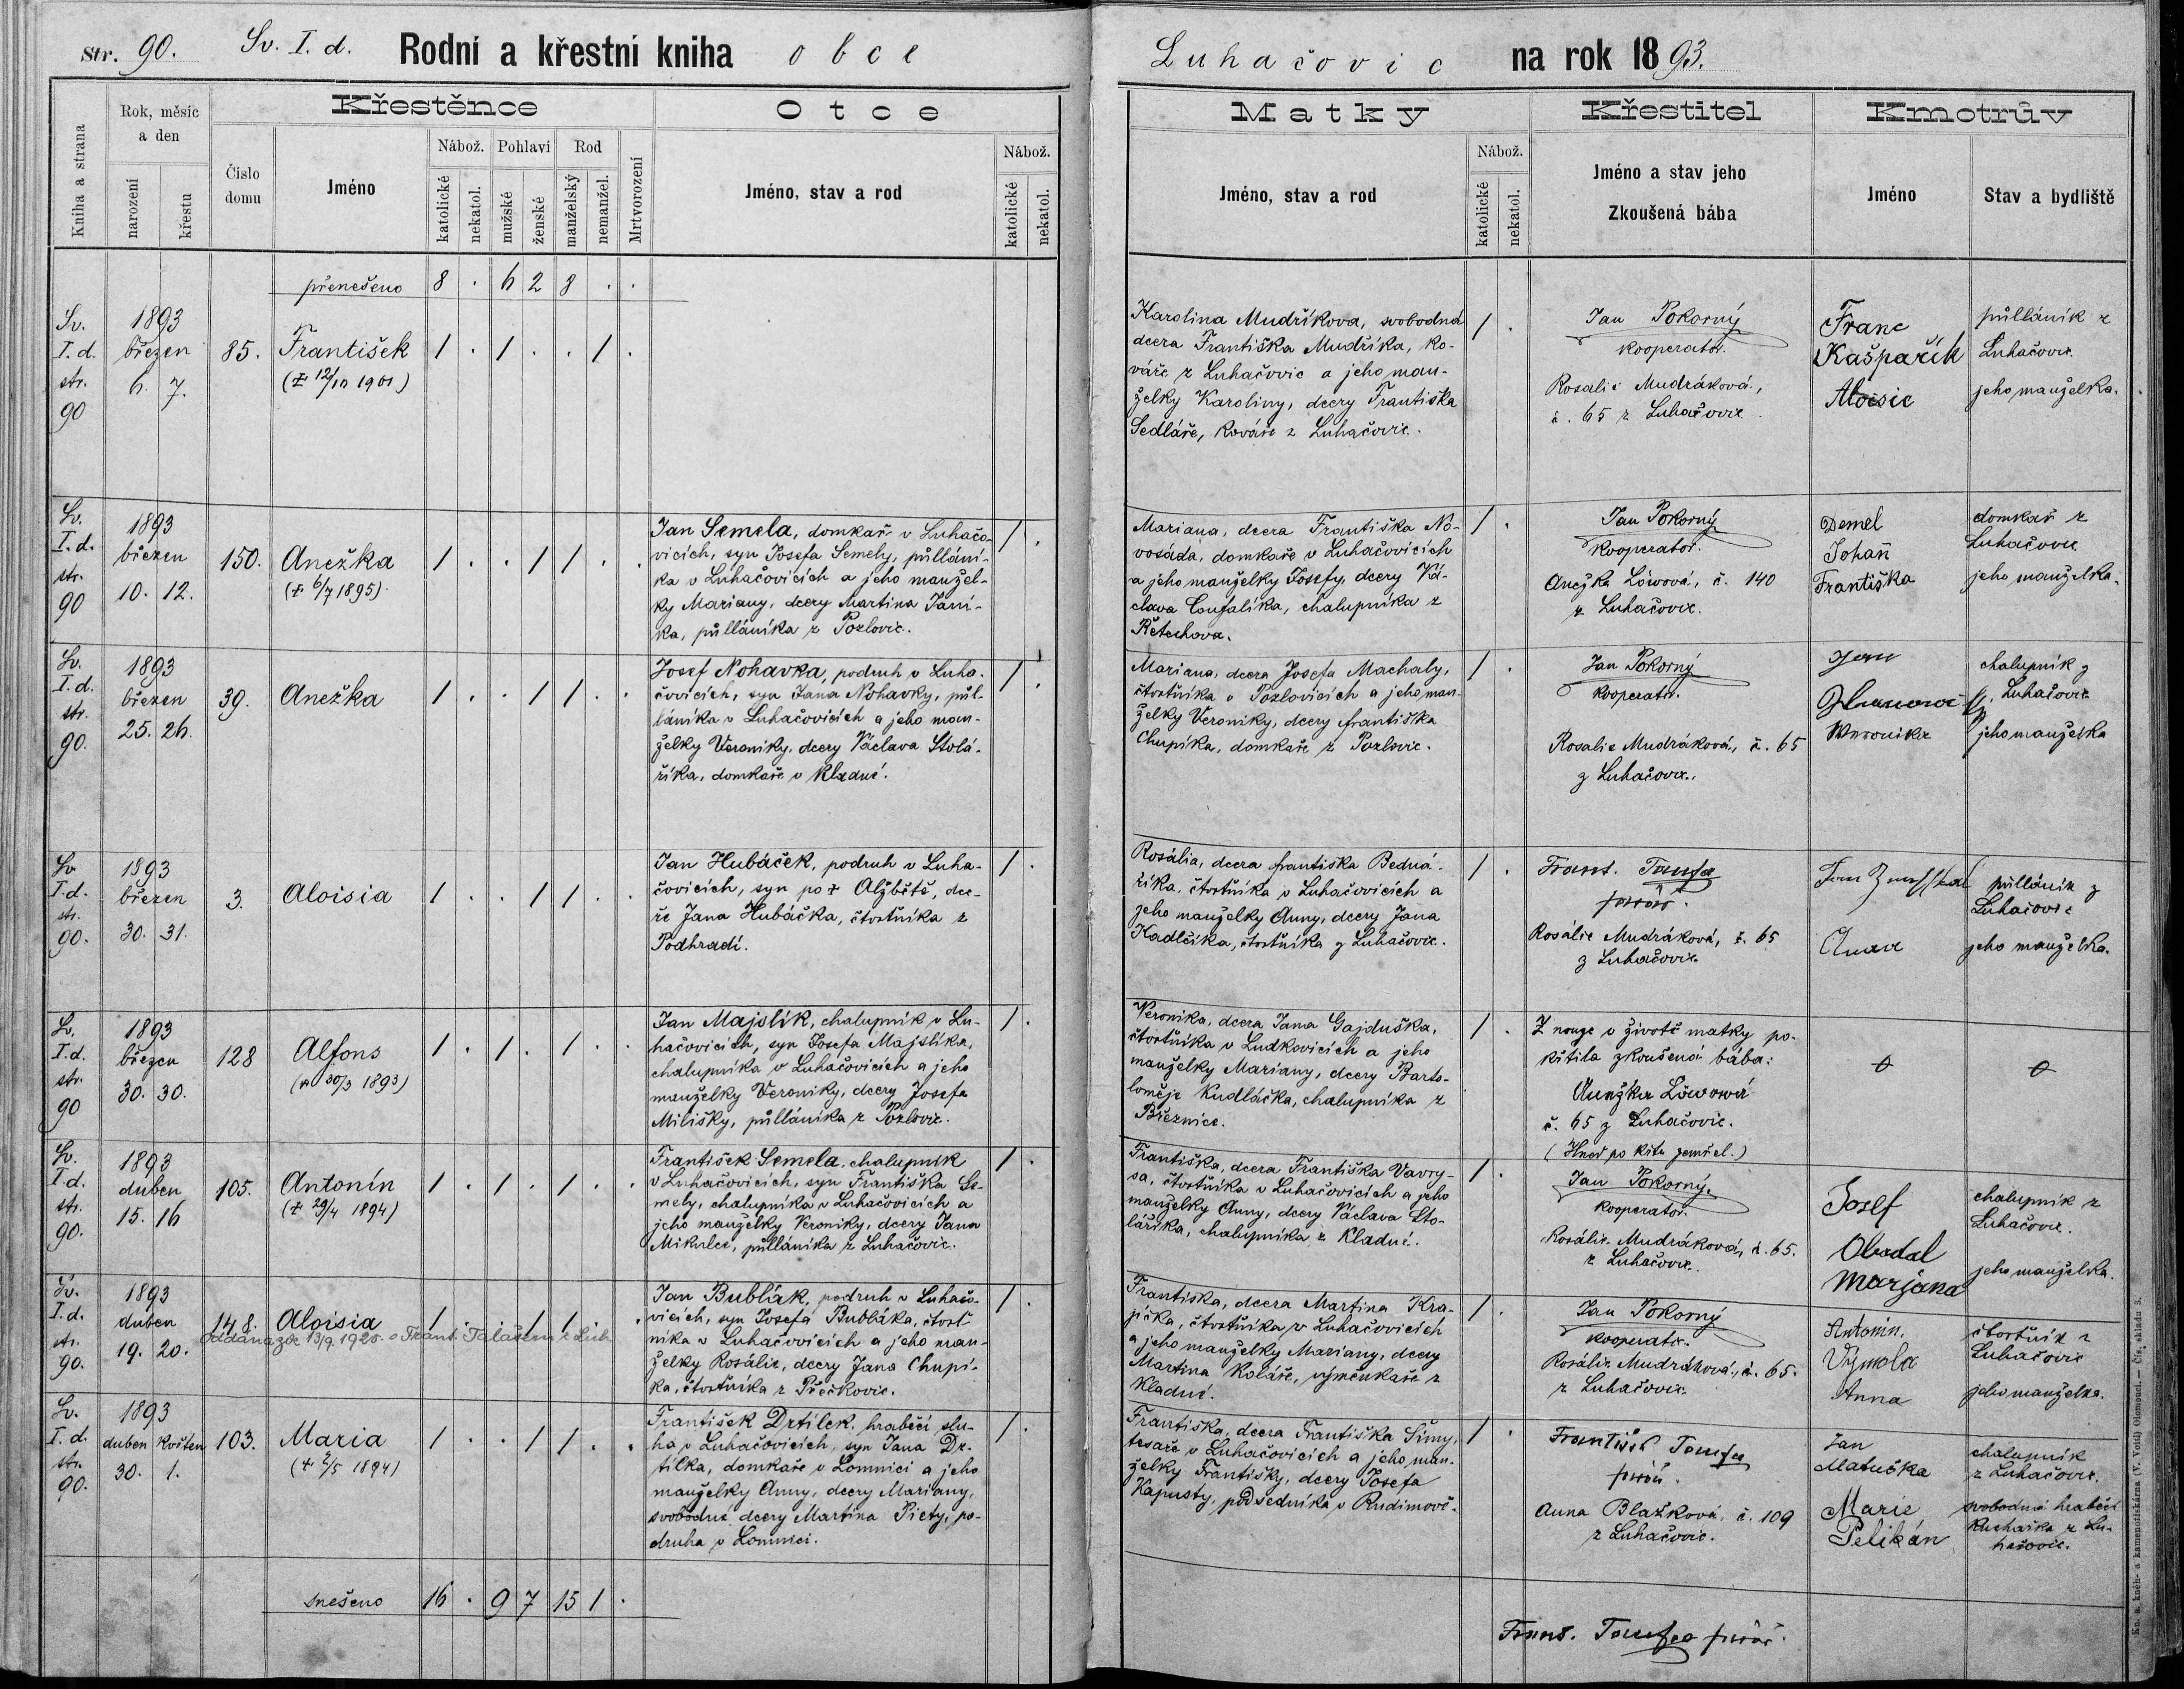 Str. 90. Sv. I. d. Rodní a křestní kniha obce
Kniha a strana
Rok, měsíc
a den
narození
křestu
Číslo
domu
Křestěnce
Jméno
Nábož.
katolické
nekatol.
Pohlaví
mužské
ženské
Rod
manželský
nemanžel.
Mrtvorození
Otce
Jméno, stav a rod
Nábož.
katolické
nekatol.
přenešeno 8 . 6 2 8 . .
Sv.
I. d.
str.
90
1893
březen
6. 7.
85.
František
(† 12/10 1901)
1 . 1 . . 1 .
Sv.
I. d.
str.
90
1893
březen
10. 12.
150.
Anežka
(† 6/7 1895)
1 . . 1 1 . .
Jan Semela, domkař v Luhačo-
vicích, syn Josefa Semely, půllání-
ka v Luhačovicích a jeho manžel-
ky Mariany, dcery Martina Janí-
ka, půlláníka z Pozlovic.
1 .
Sv.
I. d.
str.
90.
1893
březen
25. 26.
39.
Anežka
1 . . 1 1 . .
Josef Nohavka, podruh v Luha-
čovicích, syn Jana Nohavky, půl-
láníka v Luhačovicích a jeho man-
želky Veroniky, dcery Václava Stola-
říka, domkaře v Kladné.
1 .
Sv.
I. d.
str.
90.
1893
březen
30. 31.
3.
Aloisia
1 . . 1 1 . .
Jan Hubáček, podruh v Luha-
čovicích, syn po † Alžbětě, dce-
ře Jana Hubáčka, čtvrtníka z
Podhradí.
1 .
Sv.
I. d.
str.
90
1893
březen
30. 30.
128
Alfons
(† 30/3 1893)
1 . 1 . 1 . .
Jan Majslík, chalupník v Lu-
hačovicích, syn Josefa Majslíka,
chalupníka v Luhačovicích a jeho
manželky Veroniky, dcery Josefa
Milišky, půlláníka z Pozlovic.
1 .
Sv.
I. d.
str.
90.
1893
duben
15. 16
105.
Antonín
(† 29/4 1894)
1 . 1 . 1 . .
František Semela, chalupník
v Luhačovicích, syn Františka Se-
mely, chalupníka v Luhačovicích a
jeho manželky Veroniky, dcery Jana
Mikulce, půlláníka z Luhačovic.
1 .
Sv.
I. d.
str.
90.
1893
duben
19. 20.
148.
Aloisia
oddána zde 13/9. 1920. s Frant. Talašem z Luh
1 . . 1 1 . .
Jan Bublák, podruh v Luhačo-
vicích, syn Josefa Bubláka, čtvrt-
níka v Luhačovicích a jeho man-
želky Rosálie, dcery Jana Chupí-
ka, čtvrtníka z Přečkovic.
1 .
Sv.
I. d.
str.
90.
1893
duben květen
30. 1.
103.
Maria
(† 2/5 1894)
1 . . 1 1 . .
František Drtílek, hraběcí slu-
ha v Luhačovicích, syn Jana Dr-
tílka, domkaře v Lomnici a jeho
manželky Anny, dcery Mariany,
svobodné dcery Martina Piety, po-
druha v Lomnici.
1 .
snešeno 16 . 9 7 15 1 .
Luhačovic na rok 1893.
Matky
Jméno, stav a rod
Nábož.
katolické
nekatol.
Křestitel
Jméno a stav jeho
Zkoušená bába
Kmotrův
Jméno
Stav a bydliště
Karolina Mudříkova, svobodná
dcera Františka Mudříka, ko-
váře z Luhačovic a jeho man-
želky Karoliny, dcery Františka
Sedláře, kováře z Luhačovic.
1 .
Jan Pokorný
kooperator.
Rosalie Mudráková,
č. 65 z Luhačovic.
Franc
Kašpařík
Aloisie
půlláník z
Luhačovic.
jeho manželka.
Mariana, dcera Františka No-
vosáda, domkaře v Luhačovicích
a jeho manželky Josefy, dcery Vá-
clava Coufalíka, chalupníka z
Řetechova.
1 .
Jan Pokorný
kooperator.
Anežka Löwová, č. 140
z Luhačovic.
Demel
Johan
Františka
domkař z
Luhačovic
jeho manželka.
Mariana, dcera Josefa Machaly,
čtvrtníka v Pozlovicích a jeho man-
želky Veroniky, dcery Františka
Chupíka, domkaře z Pozlovic.
1 .
Jan Pokorný
kooperator.
Rosalie Mudráková, č. 65
z Luhačovic.
Jan
chalupník z
Luhačovic
jeho manželka
Rosália, dcera Františka Bedna-
říka, čtvrtníka v Luhačovicích a
jeho manželky Anny, dcery Jana
Kadlčíka, čtvrtníka z Luhačovic.
1 .
Frant. Tomfa
farář.
Rosálie Mudráková, č. 65
z Luhačovic.
Anna
půlláník z
Luhačovic
jeho manželka.
Veronika, dcera Jana Gajduška,
čtvrtníka v Ludkovicích a jeho
manželky Mariany, dcery Barto-
loměje Kudláčka, chalupníka z
Březnice.
1 .
Z nouze v životě matky po-
křtila zkoušená bába:
Anežka Löwová
č. 65 z Luhačovic.
(Hned po křtu zemřel.)
Františka, dcera Františka Vavry-
sa, čtvrtníka v Luhačovicích a jeho
manželky Anny, dcery Václava Sto-
laříka, chalupníka z Kladné.
1 .
Jan Pokorný.
kooperator.
Rosálie Mudráková, č. 65.
z Luhačovic.
Josef
Obadal
Marjana
chalupník z
Luhačovic.
jeho manželka.
Františka, dcera Martina Kra-
jíčka, čtvrtníka v Luhačovicích
a jeho manželky Mariany, dcery
Martina Koláře, výměnkaře z
Kladné.
1 .
Jan Pokorný
kooperator.
Rosálie Mudráková, č. 65.
z Luhačovic.
Antonín.
Výmola
Anna
čtvrtník z
Luhačovic
jeho manželka.
Františka, dcera Františka Šimy,
tesaře v Luhačovicích a jeho man-
želky Františky, dcery Josefa
Kapusty, podsedníka v Rudimově.
1 .
František Tomfa
farář.
Anna Blažková, č. 109
z Luhačovic.
Jan
Matuška
Marie
Pelikán
chalupník
z Luhačovic.
svobodná hraběcí
kuchařka z Lu-
hačovic.
Frant. Tomfa farář.
Kn. a kněh- a kamenotiskárna (V. Voitl) Olomouci. — Čís. skladu 3.